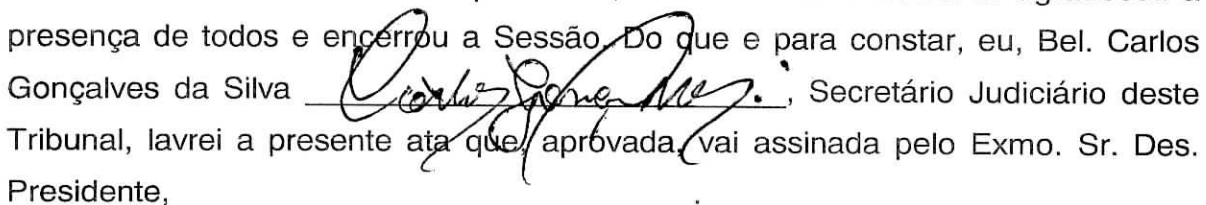 presença de todos e encerrou a Sessão. Do que e para constar, eu, Bel. Carlos
Gonçalves da Silva , Secretário Judiciário deste
Tribunal, lavrei a presente ata que, aprovada, vai assinada pelo Exmo. Sr. Des.
Presidente,